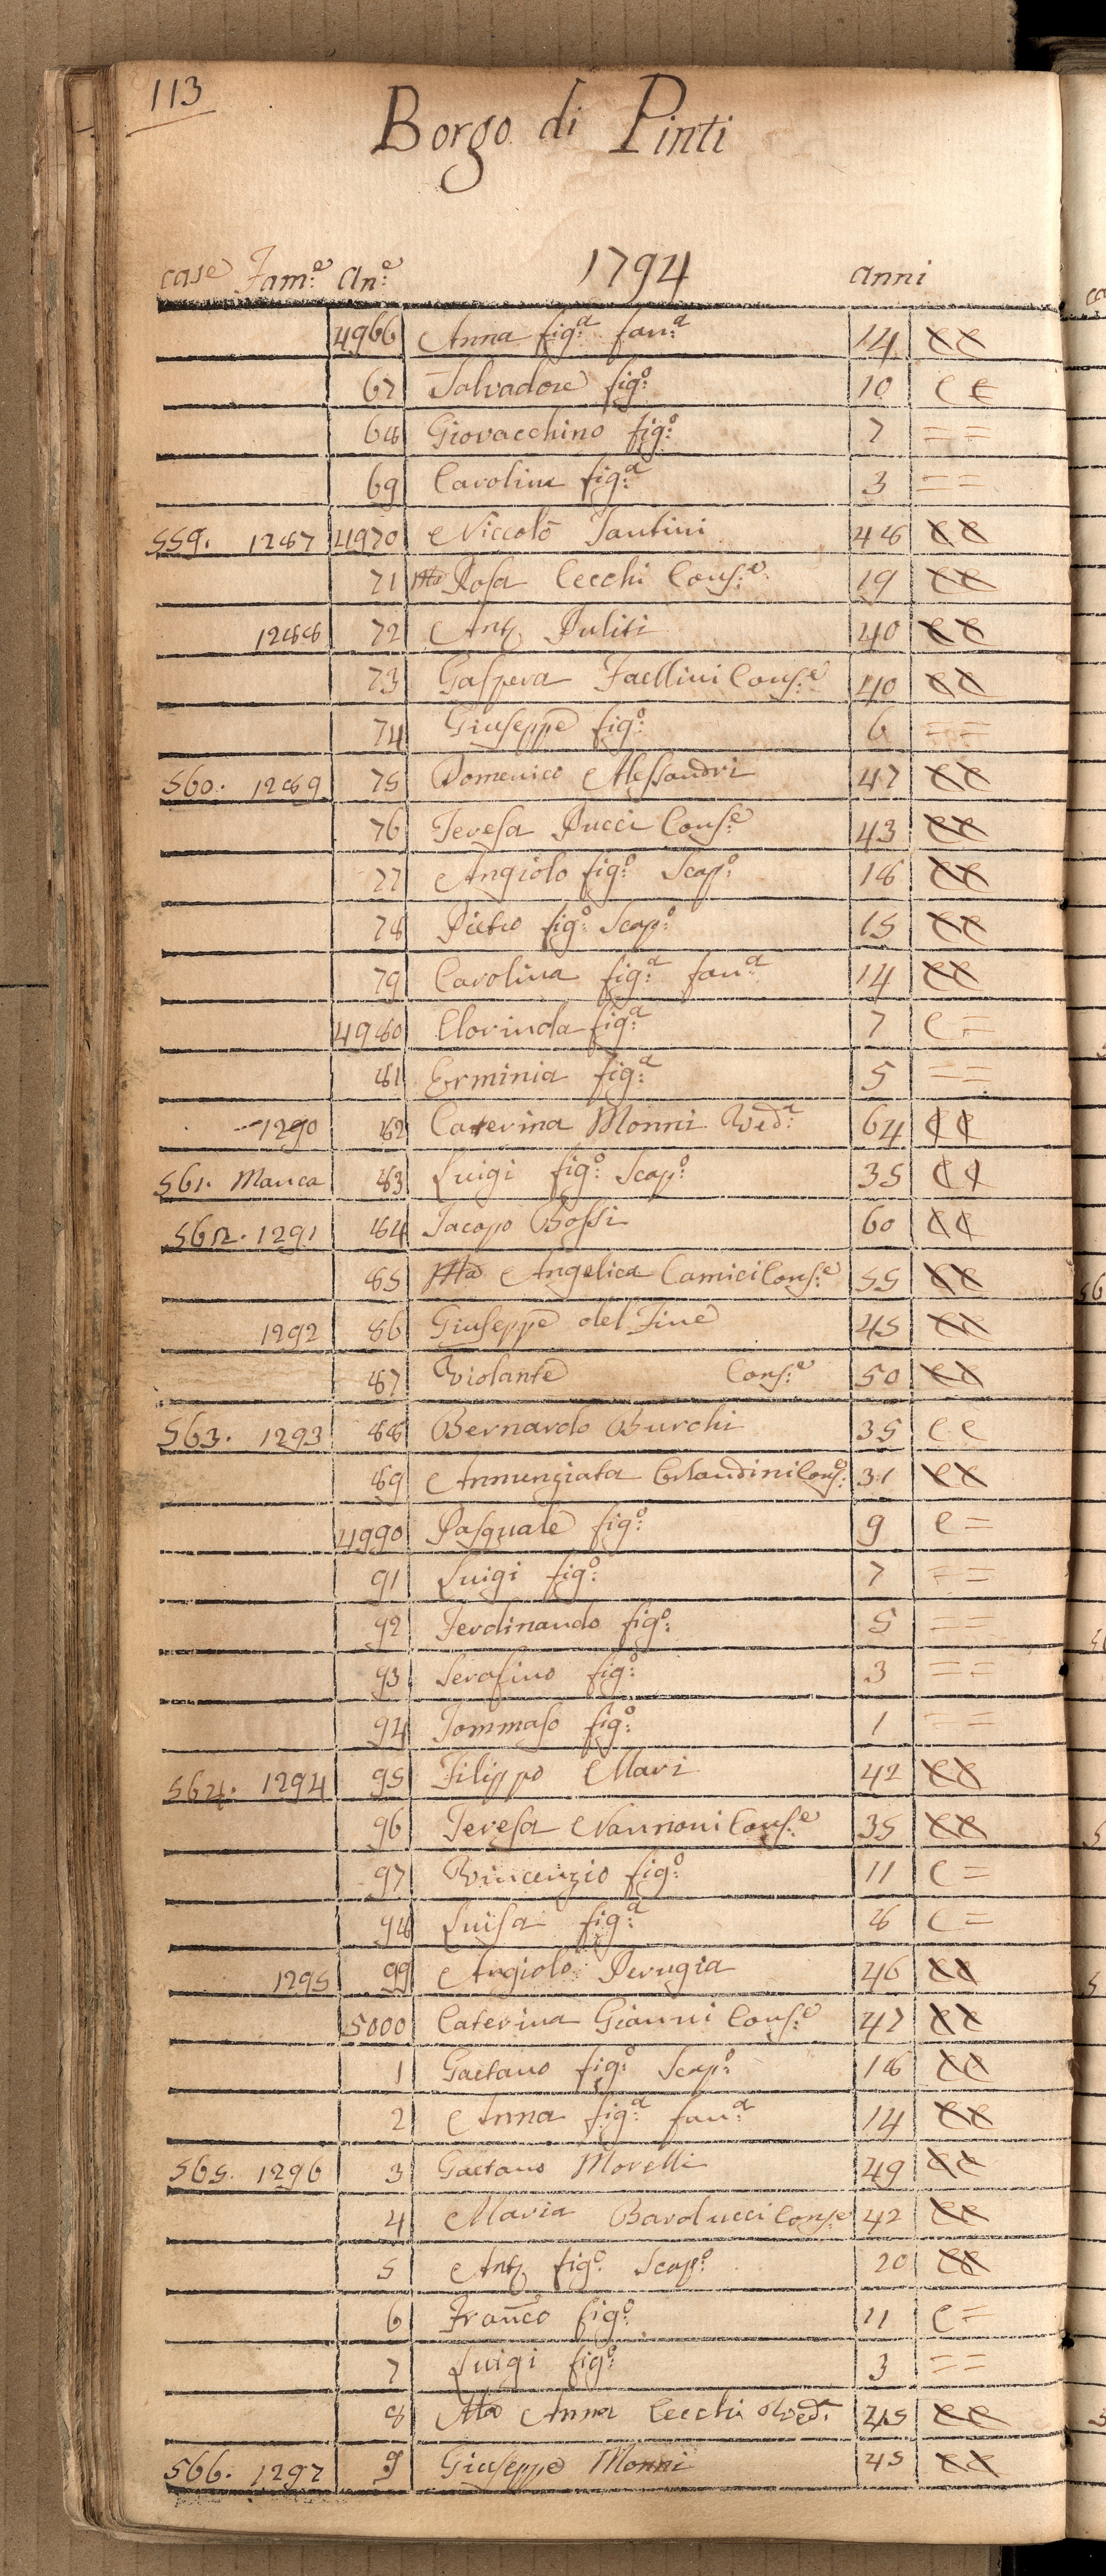 113
Borgo di Pinti
case Fam:e An:e 1794 anni
4966 Anna fig:a fan:a 14 CC
67 Salvadore fig:o 10 C C
68 Giovacchino fig:o 7 = =
69 Carolina fig:a 3 = =
559. 1287 4970 Niccolò Santini 48 CC
71 Ma Rosa Cecchi Cons:e 19 CC
1288 72 Anto Puliti 40 CC
73 Gaspera Faellini Cons:e 40 CC
74 Giuseppe fig:o 6 = =
560. 1289 75 Domenico Alessandri 47 CC
76 Teresa Pucci Cons:e 43 CC
77 Angiolo fig:o Scap:o 18 CC
78 Pietro fig:o Scap:o 15 CC
79 Carolina fig:a fan:a 14 CC
4980 Clorinda fig:a 7 C =
81 Erminia fig:a 5 = =
1290 82 Caterina Monni Ved:a 64 C C
561. Manca 83 Luigi fig:o Scap:o 35 C C
562. 1291 84 Jacopo Bossi 60 C C
85 Ma Angelica Camici Cons:e 55 CC
1292 86 Giuseppe del Fine 45 CC
87 Violante Cons:e 50 CC
563. 1293 88 Bernardo Burchi 35 C C
89 Annunziata Orlandini Cons: 31 CC
4990 Pasquale fig:o 9 C =
91 Luigi fig:o 7 = =
92 Ferdinando fig:o 5 = =
93 Serafino fig:o 3 = =
94 Tommaso fig:o 1 = =
564. 1294 95 Filippo Mari 42 CC
96 Teresa Nannoni Cons:e 35 CC
97 Vincenzio fig:o 11 C =
98 Luisa fig:a 8 C =
1295 99 Angiolo Perugia 46 CC
5000 Caterina Gianni Cons:e 47 CC
1 Gaetano fig:o Scap:o 18 CC
2 Anna fig:a fan:a 14 CC
565. 1296 3 Gaetano Morelli 49 CC
4 Maria Barducci Cons:e 42 CC
5 Anto fig:o Scap:o 20 CC
6 Franco fig:o 11 C =
7 Luigi fig:o 3 = =
8 Ma Anna Cecchi Ved:a 45 CC
566. 1297 9 Giuseppe Monni 45 CC